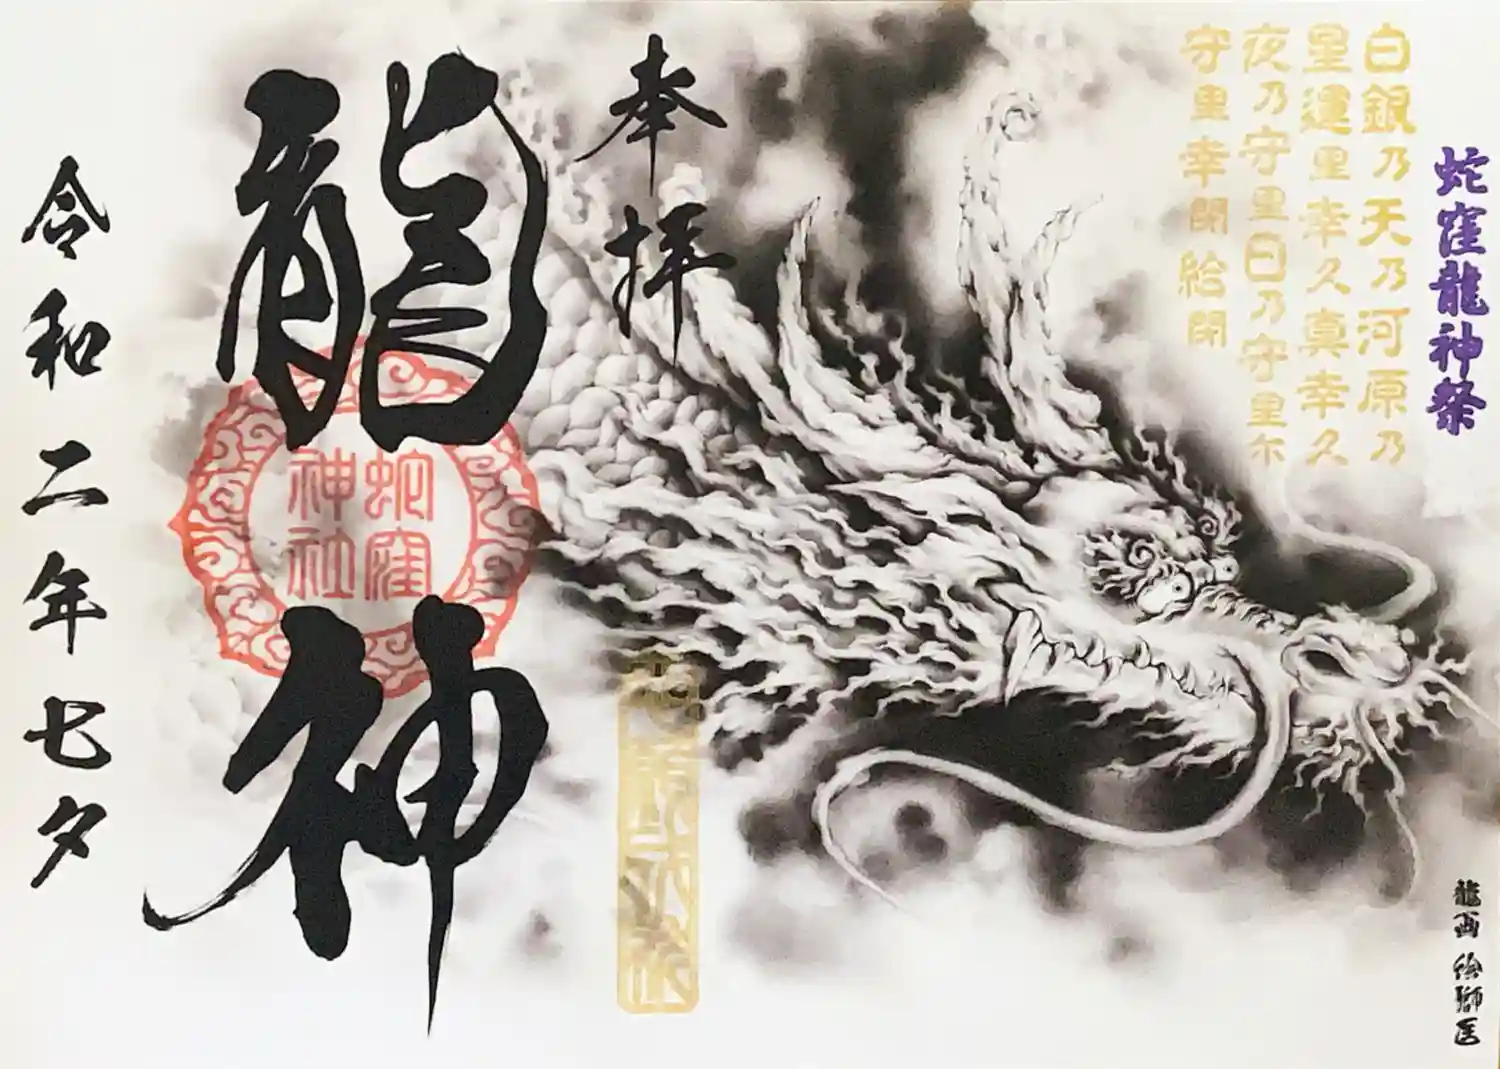 蛇窪龍神祭
白銀乃天乃河原乃
星運里幸久真幸久
夜乃守里日乃守里尓
守里幸閇給閇
奉拝
龍神
蛇窪
神社
令和二年七夕
龍画 絵獅匠